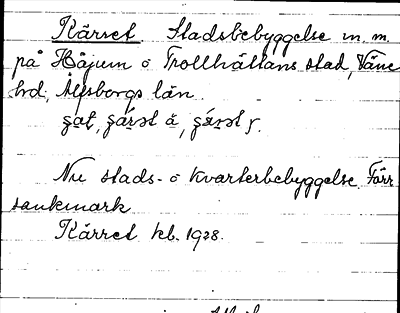 Kärret. Stadsbebyggelse m. m.
på Håjum o Trollhättans stad, Väne
hrd, Älfsborgs län.
Nu stads- o kvarterbebyggelse. Förr
sankmark
Kärret kb. 1928.